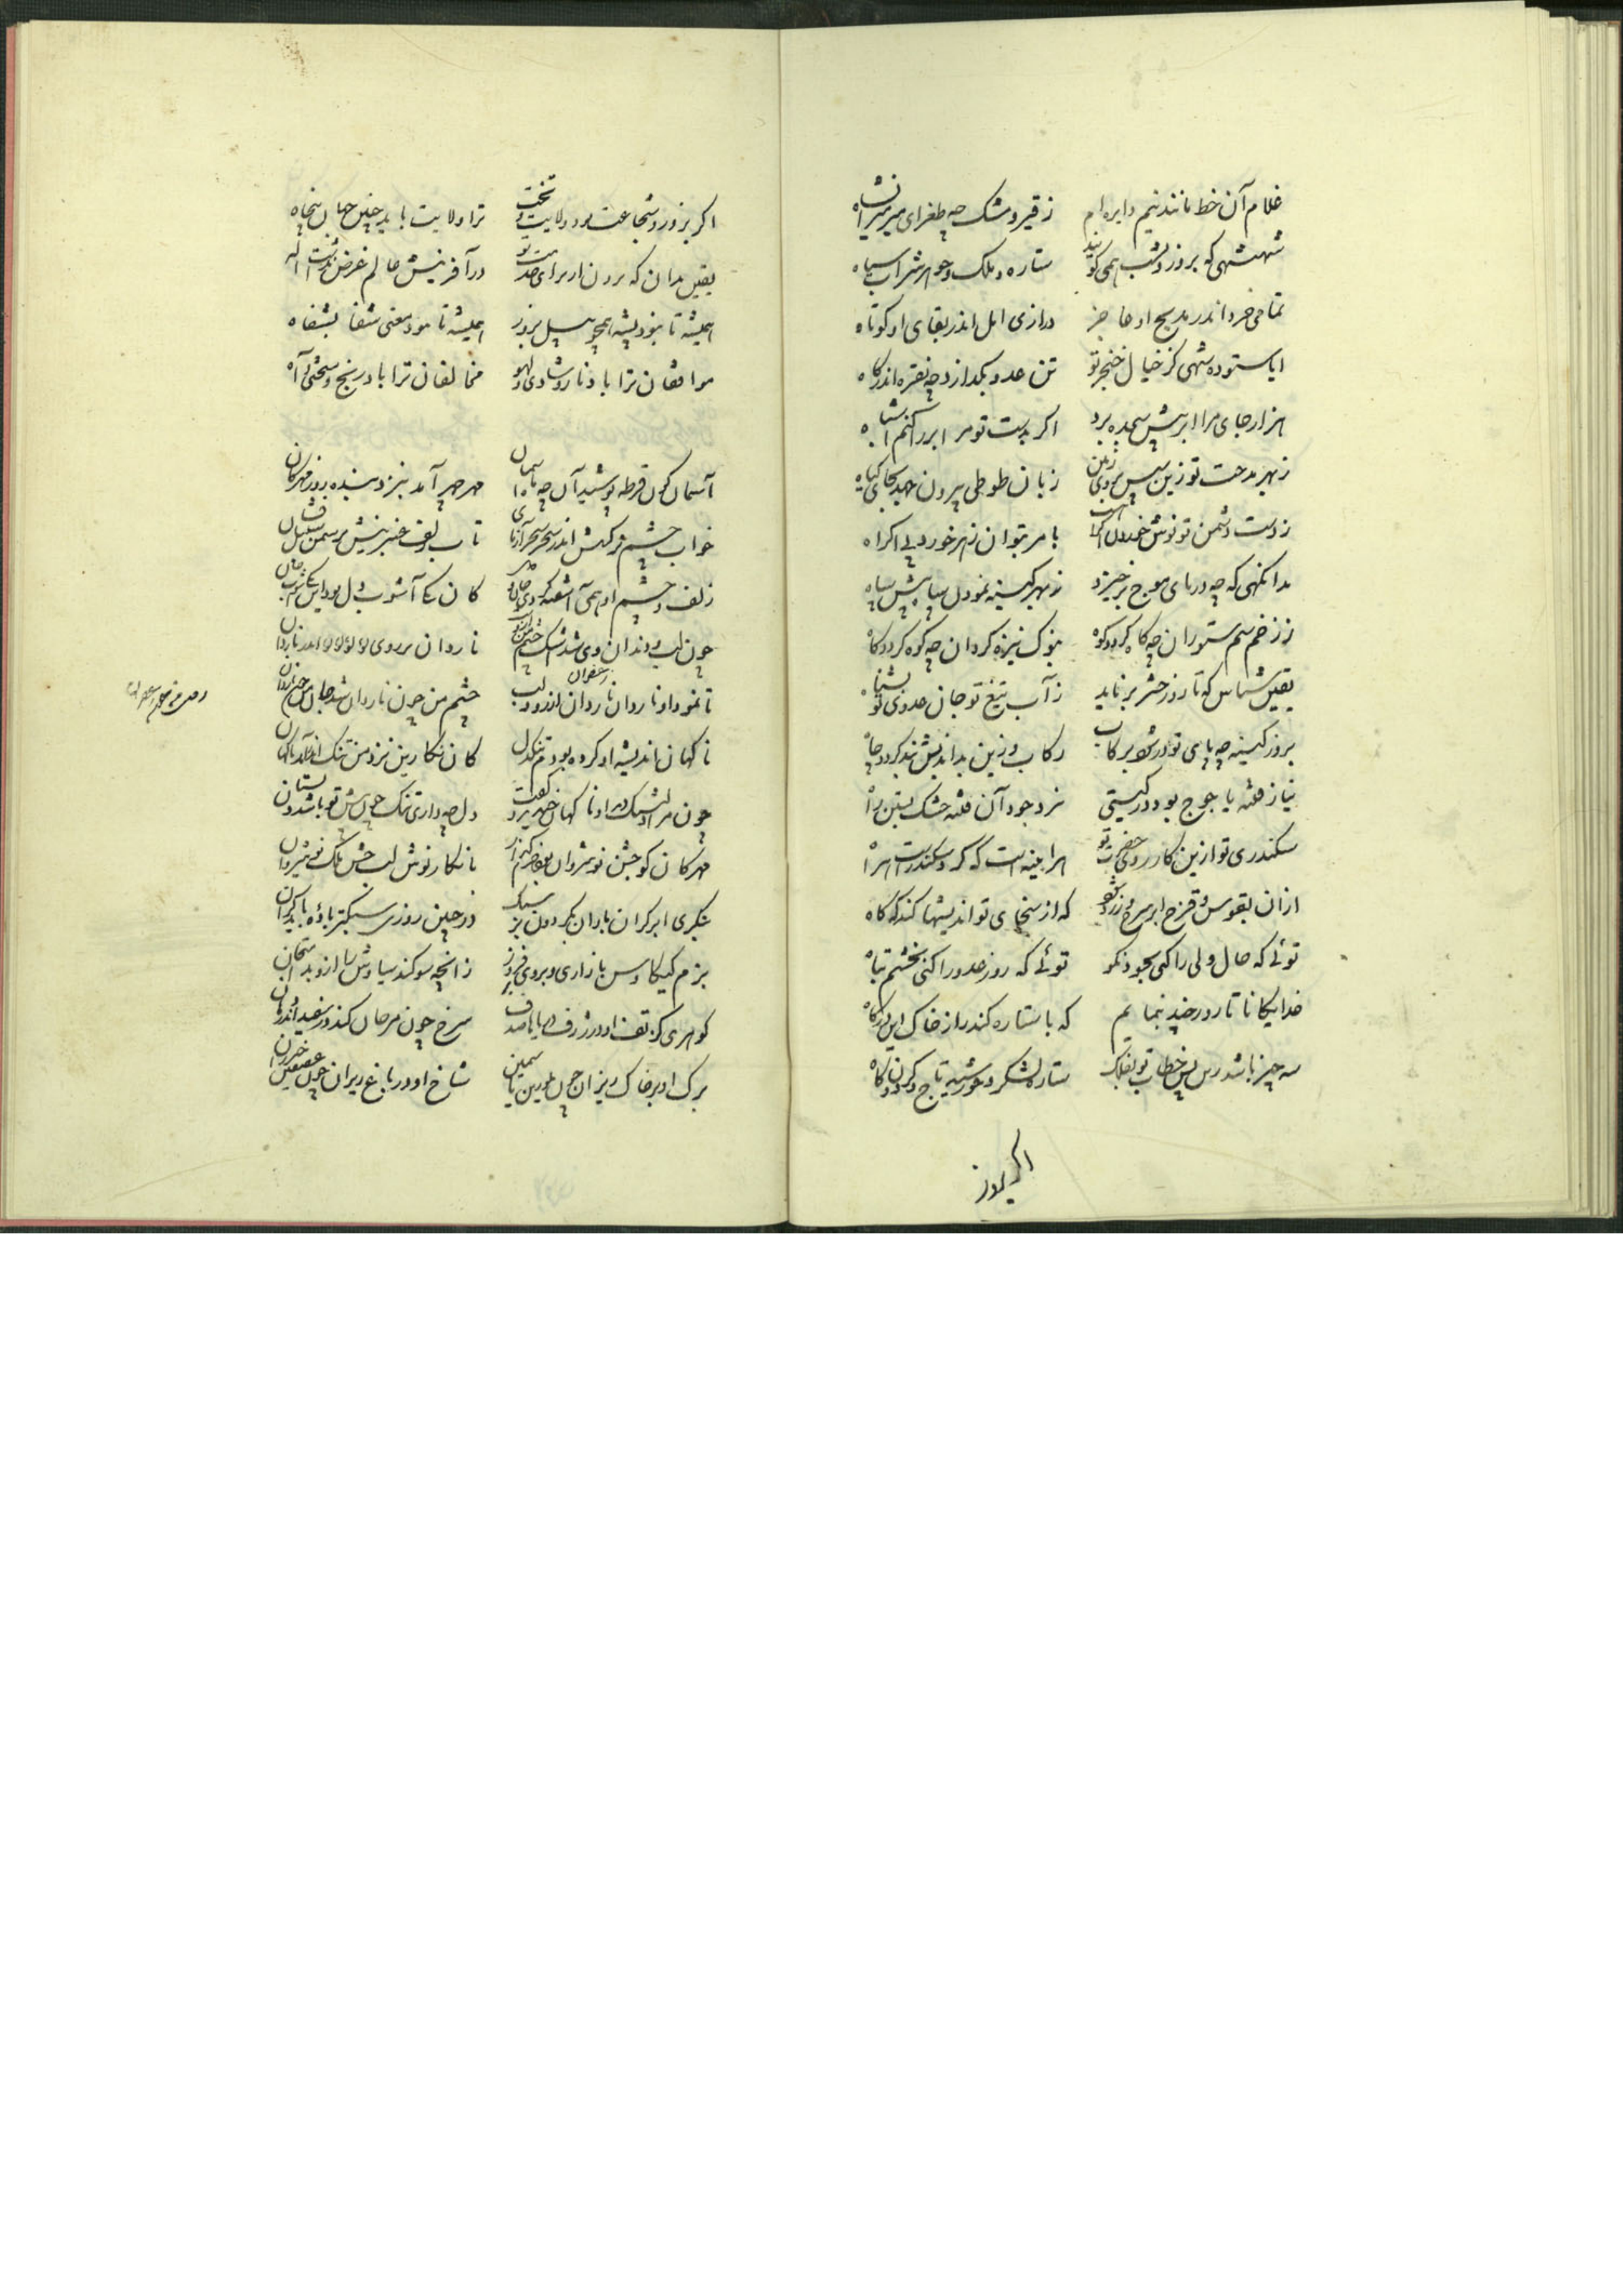 غلام آن خط مانند نیم دایره ام زقیر و مشک چه طغرای میر میرانشاه
شهنشهی که بروز و شب همی کویند ستاره و ملک و جوهر شراب سیاه
تمامی خرد اندر مدیح او عاجز درازی امل اندر بقای او کوتاه
ایا ستوده شهی کز خیال خنجر تو تن عدو بکدازد چه نقره اندر کاه
هزار جای مرا ابر پیش سجده برد اکر بدست تو مر ابر را کنم اشباه
زبهر مدحت تو زین سپس بروی زمین زبان طوطی بیرون جهد بجای کیاه
زدست دشمن تو نوش خوردن با مر بتوان زهر خورد بی اکراه
بدانکهی که چه دریای موج برخیزد زبهر کینه نمودن سپاه پیش سپاه
ززخم سم ستوران چه کاه کردد کوه بنوک نیزه کردان چه کوه کردد کاه
یقین شناس که تا روز حشر برناید زآب تیغ تو جان عدوی تو بشناه
بروز کینه چه پای تو در شود برکاب رکاب و زین بداندیش بند کردد و چاه
نیاز فتنه یاجوج بود در کیتی نه جود آن فتنه خشک بستن راه
سکندری تو ازین کار روی حضرت تو هراینه است که که سکندرست
ازان بقوس و قزح ابر سرخ و زرد شود که از سخای تو اندیشها کند که کاه
توئی که حال ولی را کنی بجود نکو توئی که روز عدو را کنی بخشم تباه
خدایکانا تا رود بنمایم که با ستاره کند راز خاک این درکاه
سه چیز باشد زین پس خطاب تو بفلک ستاره لشکر و خورشید تاج و کردون کاه
اکر بزور
اکر بزور و شجاعت بود ولایت و تخت ترا ولایت باید چنین جهان پنجاه
یقین بدان که برون از برای خدمت تو در آفرینش عالم غرض نداشت اله
همیشه تا نبود پشه همچو پیل بزور همیشه تا بود معنی شفا بشفاه
موافقان ترا باد ناز و شادی و لهو مخالفان ترا باد رنج و سختی و آه
آسمان کون قرطه پوشید آن چه ماه آسمان مهر چهر آمد بنزد بنده روز مهرکان
خواب چشم نرکسش اندر سحر سحر آزمای تاب زلف عنبرینش بر سمن سنبل فشان
زلف و چشم او همی آشفته کردی کان یکی آشوب دل بود این یکی آشوب جان
چون لب و دندان وی شد اشک چشم من ناردان بر روی لولو لولو اندر ناردان
تا نمود او ناردان ناردان اندر دو لب چشم من چون ناردان شد جان من
ناکهان اندیشه او کرده بودم تنکدل کان نکارین نزد من تنک اندر آمد ناکهان
چون مرا دلتنک دید او ناکهان خندید و کفت دل چه داری تنک چون پیش تو باشد دلستان
مهرکان کو جشن نوشروان بود خرم کنم با نکار نوش لب جشن ملک نوشیروان
بنکری ابر کران باران بکردون بر سبک در چنین روزی سبکتر باده باید کران
بزم کیکاوس بازاری و بروی فروز زانچه سوکند سیاوش را ازو بد امتحان
کوهری کز تف او در ژرف دریا با صدف سرخ چون مرجان کند در سفید اندر دهان
برک او بر خاک ریزان چون بلورین یاسمین شاخ او در باغ ریزان چون عقیقین خیزران